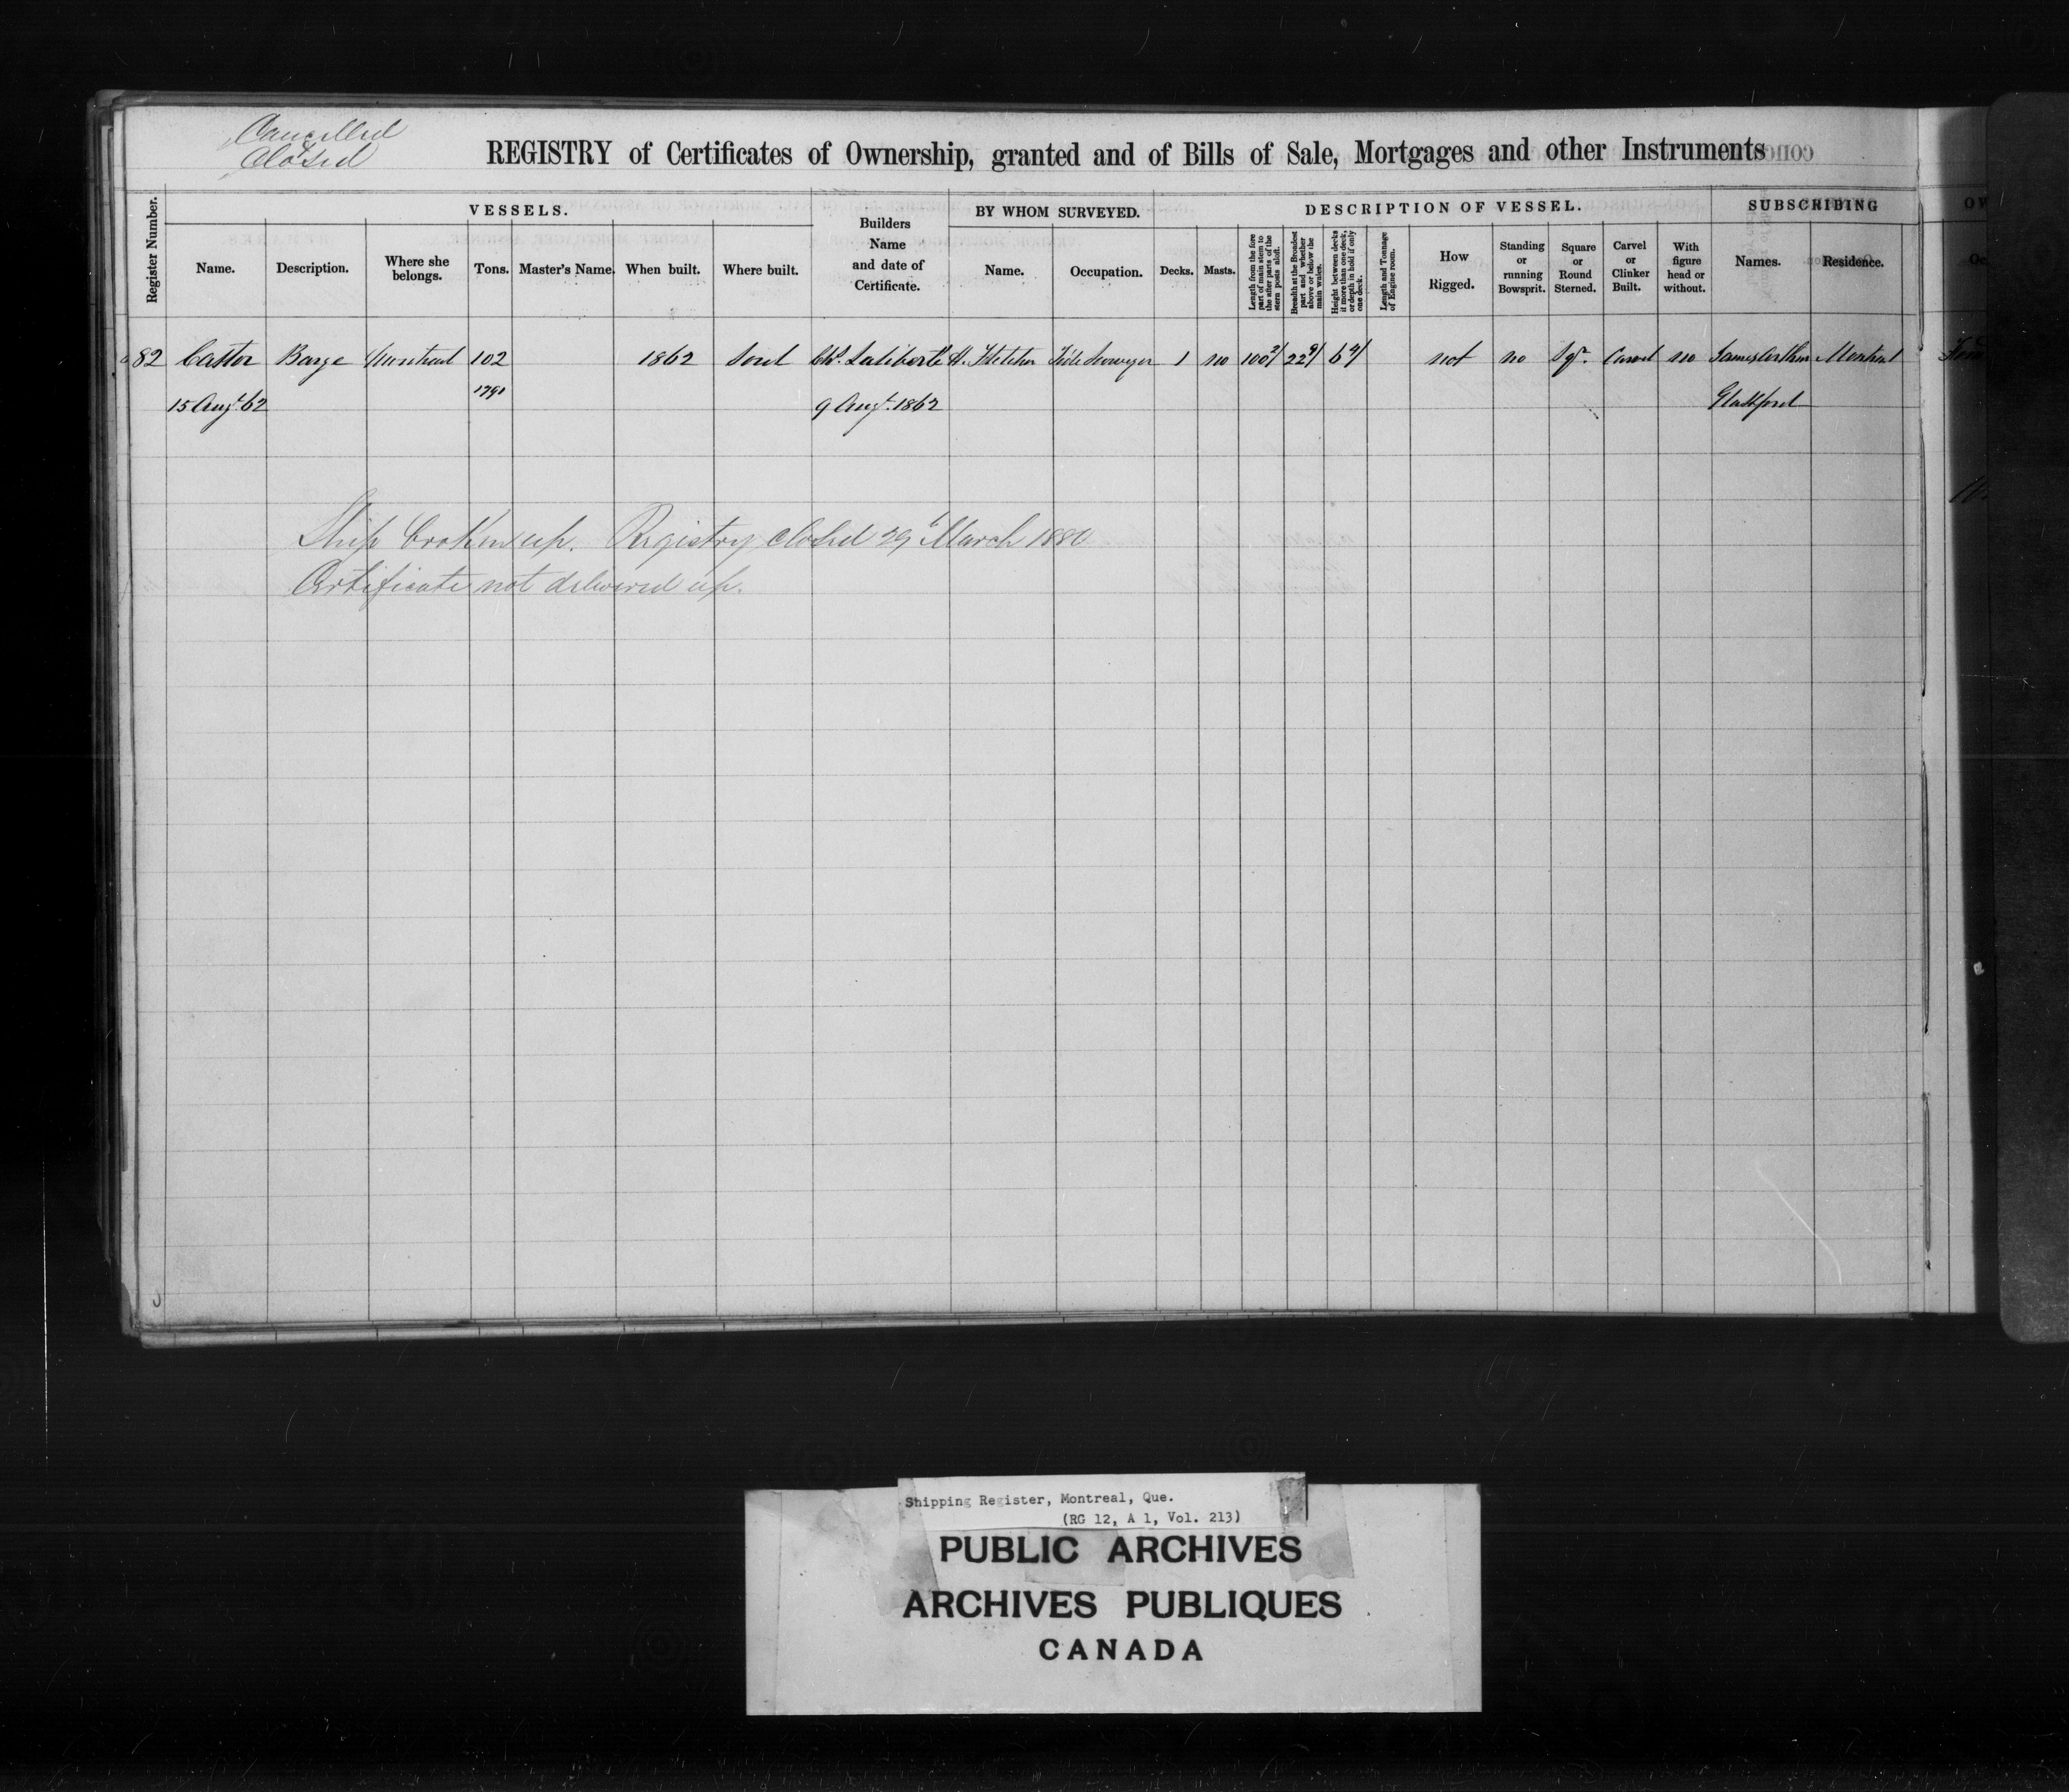 Cancelled
Closed
REGISTRY of Certificates of Ownership, granted and of Bills of Sale, Mortgages and other Instruments
Register Number.
VESSELS.
Name.
Description.
Where she belongs.
Tons.
Master's Name.
When built.
Where built.
Builders Name and date of Certificate.
BY WHOM SURVEYED.
Name.
Occupation.
DESCRIPTION OF VESSEL.
Decks.
Masts.
Length from the fore part of main stem to the after parts of the stern posts aloft.
Breadth at the Broadest part and whether above or below the main wales.
Height between decks if more than one deck, or depth in hold if only one deck.
Length and Tonnage of Engine room.
How Rigged.
Standing or running Bowsprit.
Square or Round Sterned.
Carvel or Clinker Built.
With figure head or without.
SUBSCRIBING
Names.
Residence.
82 Castor Barge Montreal 102 1862 Sorel Chs. Laliberté H. Fletcher Tide Surveyor 1 no 100 2/ 22 9/ 6 4/ not no Sqr. Carvel no James Arthur Montreal
15 Augt. 62 9 Augt. 1862 Glassford
Ship broken up. Registry closed 29 March 1880
Certificate not delivered up.
Shipping Register, Montreal, Que.
(RG 12, A 1, Vol. 213)
PUBLIC ARCHIVES
ARCHIVES PUBLIQUES
CANADA